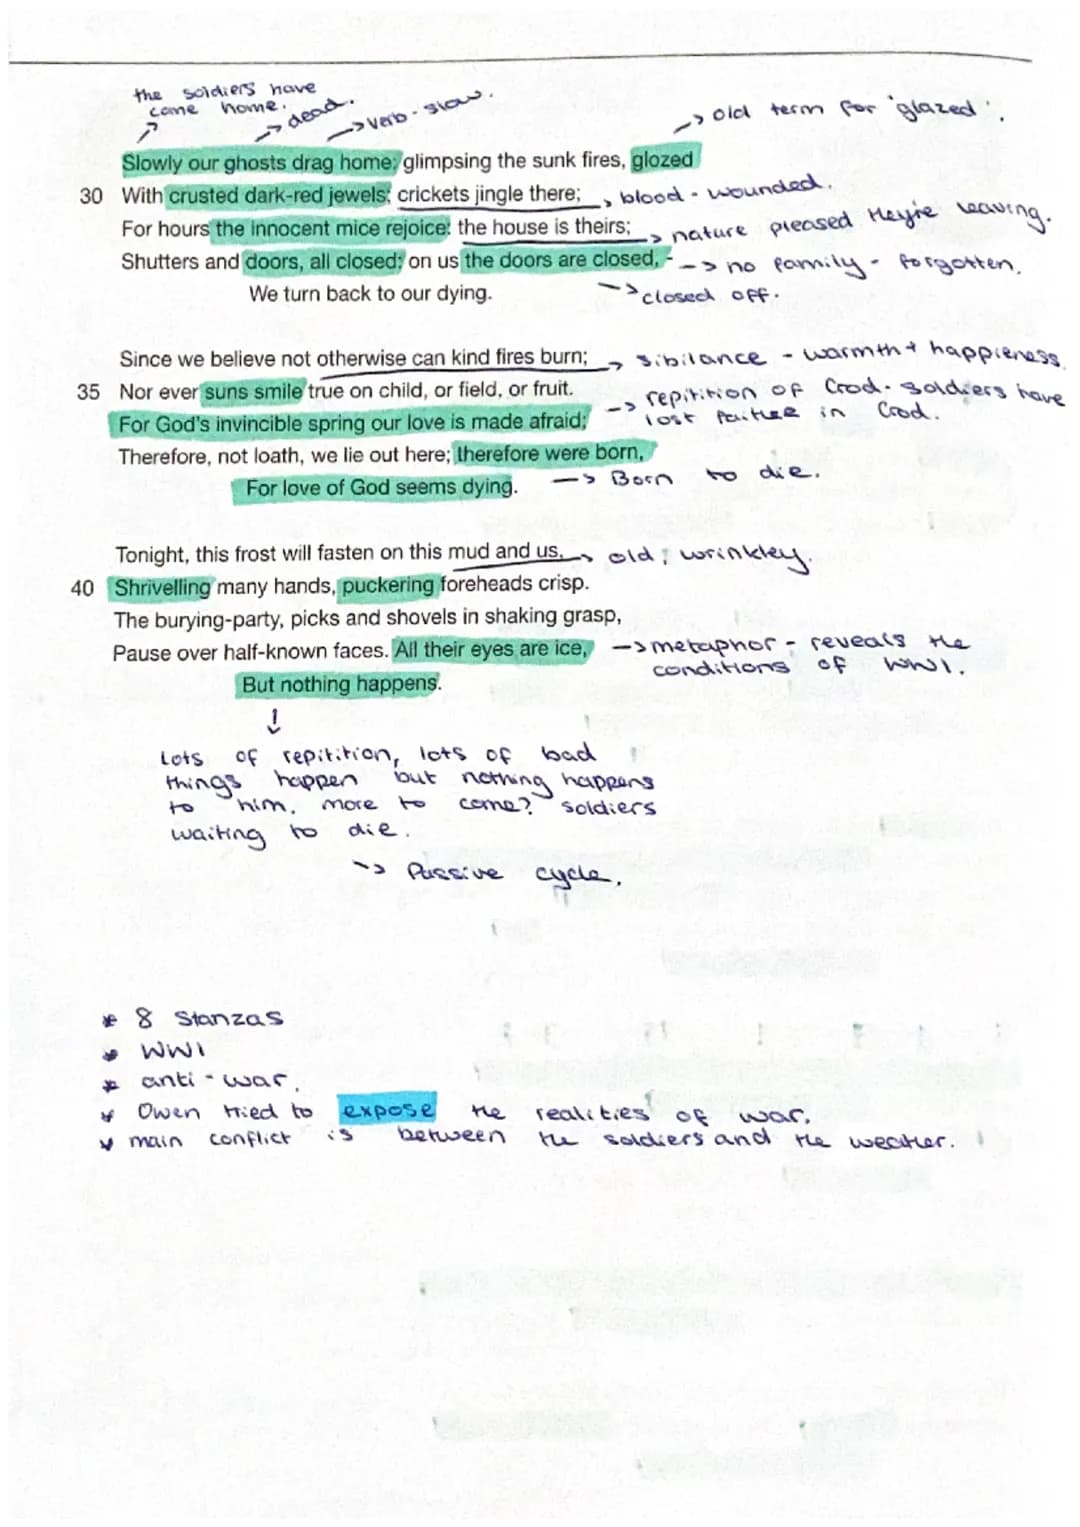 the soldiers have
come home.
dead.
verb - slow.
old term for 'glazed'.
Slowly our ghosts drag home: glimpsing the sunk fires, glozed
30 With crusted dark-red jewels; crickets jingle there;
blood - wounded.
For hours the innocent mice rejoice: the house is theirs;
nature pleased they're leaving.
Shutters and doors, all closed: on us the doors are closed, -
no family - forgotten.
We turn back to our dying.
closed off.
Since we believe not otherwise can kind fires burn;
sibilance - warmth + happieness.
35 Nor ever suns smile true on child, or field, or fruit.
repitition of God. soldiers have
lost faithe in God.
For God's invincible spring our love is made afraid;
Therefore, not loath, we lie out here; therefore were born,
For love of God seems dying.
Born to die.
Tonight, this frost will fasten on this mud and us,
old; wrinkley.
40 Shrivelling many hands, puckering foreheads crisp.
The burying-party, picks and shovels in shaking grasp,
Pause over half-known faces. All their eyes are ice,
metaphor - reveals the
conditions of WW1.
But nothing happens.
Lots of repitition, lots of bad
things happen but nothing happens
to him. more to come? soldiers
waiting to die.
Passive cycle.
* 8 Stanzas
* WW1
* anti - war.
* Owen tried to expose the realities of war.
* main conflict is between the soldiers and the weather.